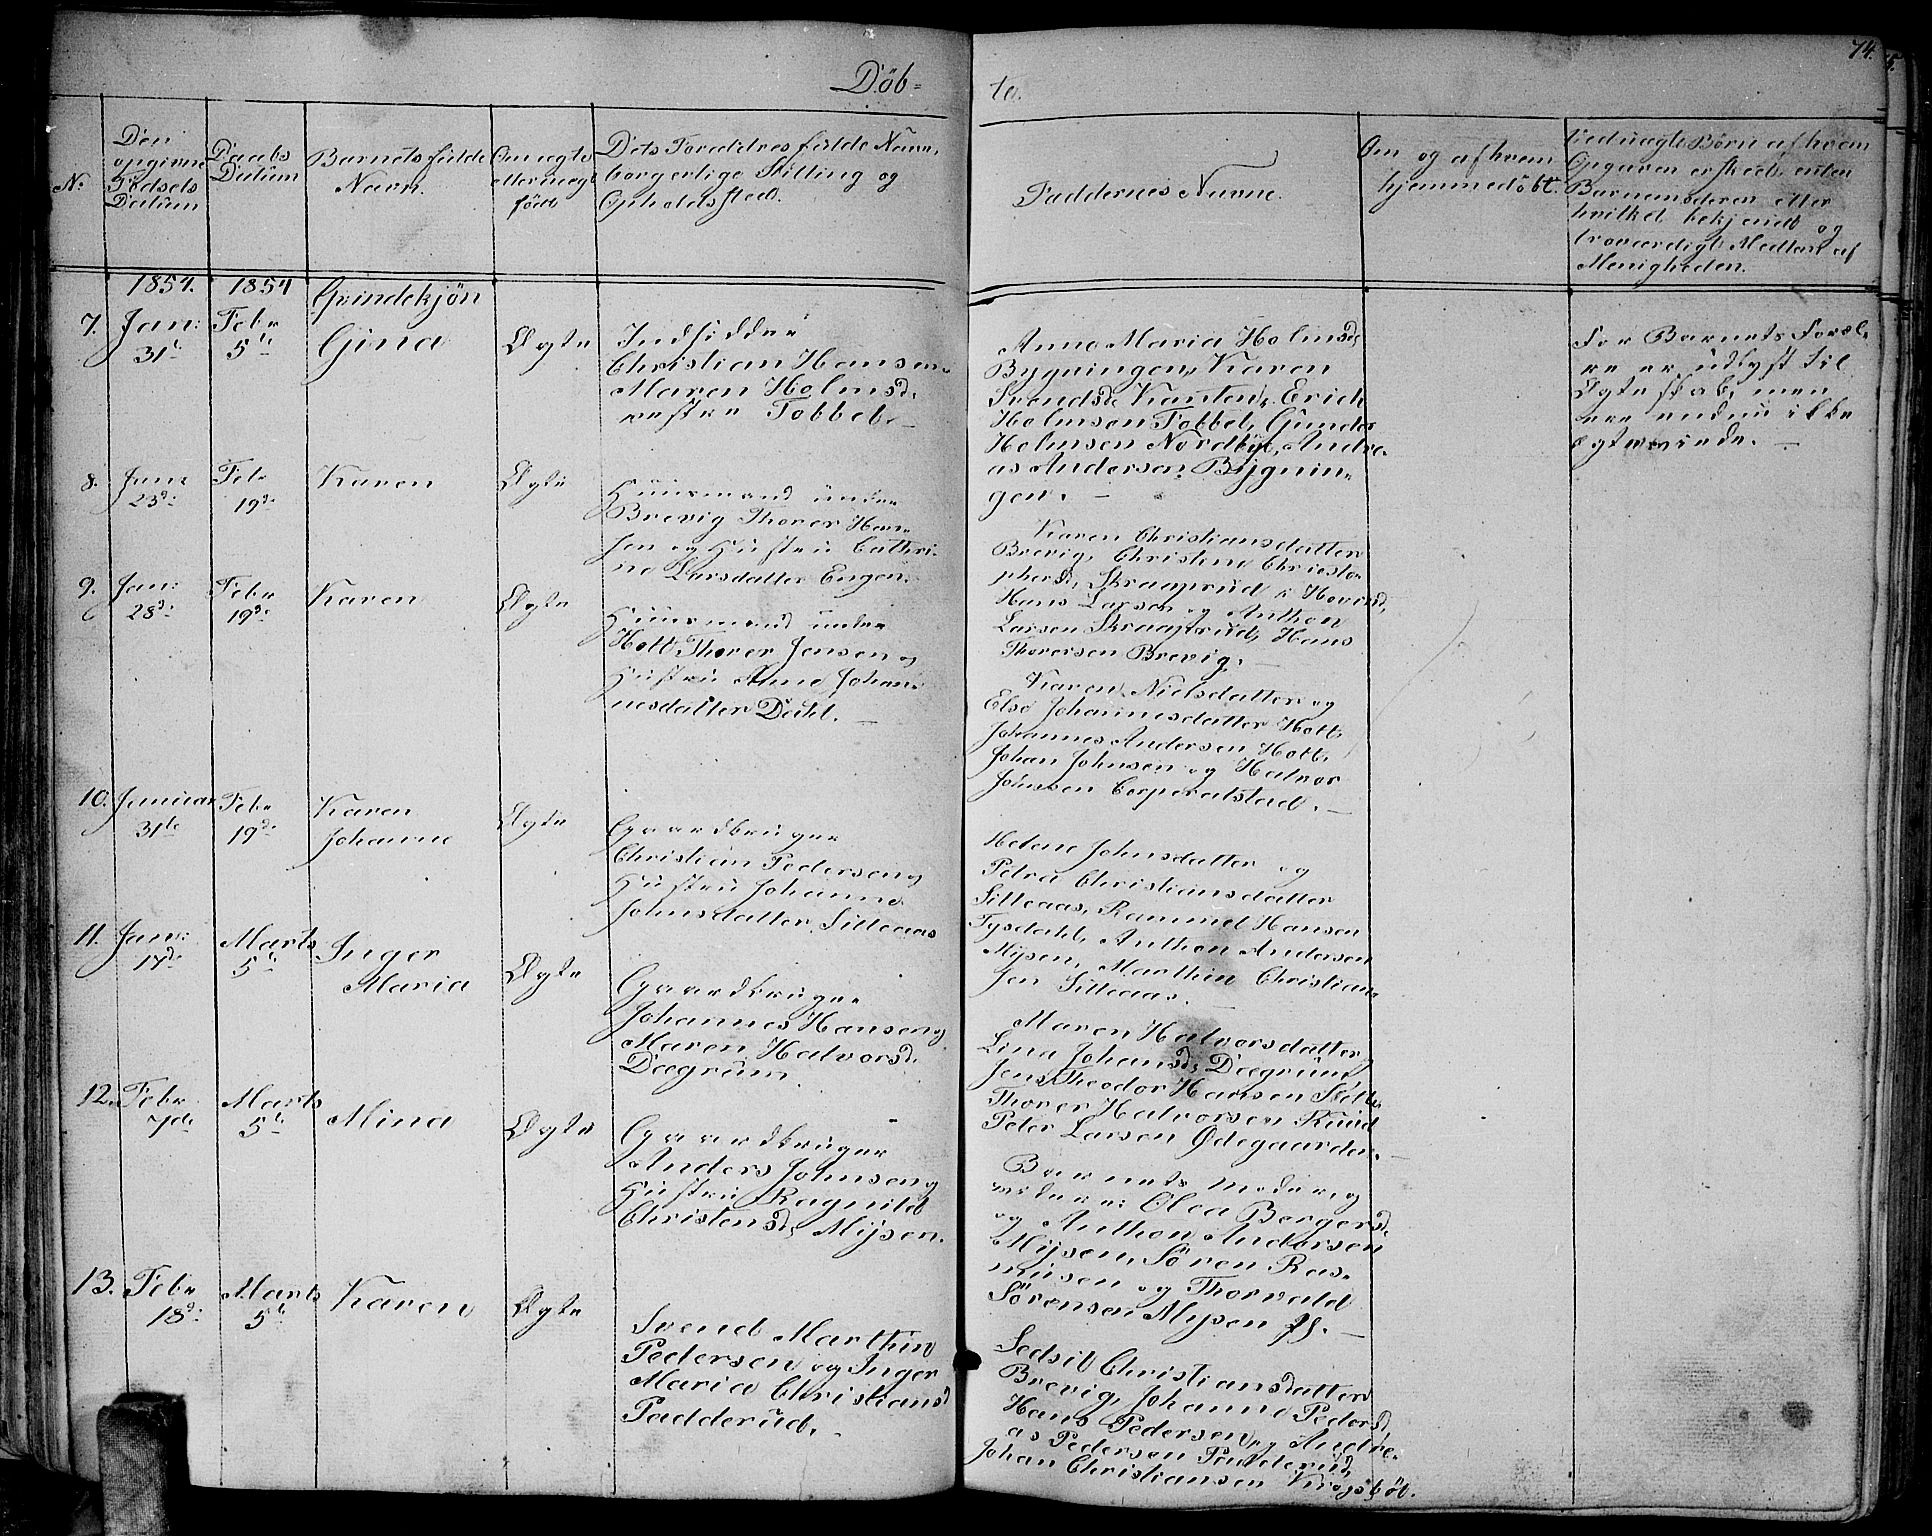 Döb=
te.
74.
5.
No
Den
opgivne
Fødsels
Datum
Daabs
Datum
Barnets fulde
Navn.
Om ægte
eller uægte
født
Dets Forældres fulde Navn,
borgerlige Stilling og
Opholdssted.
Faddernes Navne.
Om og af hvem
hjemmedöbt.
Ved uægte Børn af hvem
Opgaven er skeed, enten
Barnemoderen eller
hvilket bekjendt og
troværdigt Medlem af
Menigheden.
1854.
1854
Qvindekjön
7.
Jan:
31t
Febr
5t
Gina
Ægte
Indsidder
Christian Hansen
Maren Holmsd.
vestre Tobbel.
Anne Maria Holmsd
Bygningen, Karen
Svendsd. Kanten, Erick
Holmsen Tobbel, Gunder
Holmsen Nordbye, Andre-
as Andersen Bygnin-
gen. —
For Barnets Foræl-
re er udlyst til
Ægteskab, men
ere endnu ikke
egteviede. —
8.
Jan:
23d
Febr
19d
Karen
Ægte
Huusmand under
Brevig Thorer Han-
sen og Hustru Cathri-
ne Larsdatter Engen.
Karen Christiansdatter
Brevig, Christine Christo-
phersd. Skraaprud i Hovind,
Hans Larsen og Anthon
Larsen Skraaprud, Hans
Thorersen Brevig. —
9.
Jan:
28d
Febr
19d
Karen
Ægte
Huusmand under
Holt Thorer Jensen og
Hustru Anne Johan-
nesdatter Dahl. —
Karen Nielsdatter og
Else Johannesdatter Holt,
Johannes Andersen Holt,
Johan Johnsen og Halvor
Johnsen Corporalstad. —
10.
Januar
31te
Febr
19d
Karen
Johanne
Ægte
Gaardbruger
Christian Pedersen og
Hustru Johanne
Johnsdatter Sitteaas
Helene Johnsdatter og
Petra Christiansdatter
Sitteaas, Rammel Hansen
Tysdahl, Anthon Andersen
Mysen, Marthin Christian-
sen Sitteaas.
11.
Jan:
17d
Marts
5t
Inger
Maria
Ægte
Gaardbruger
Johannes Hansen og
Maren Halvorsd.
Dægrum.
Maren Halvorsdatter,
Lina Johansd. Dægrum
Jens Theodor Hansen
Thorer Halvorsen Rund
Peter Larsen Ødegaarden. —
12.
Febr
7de
Marts
5t
Mina
Ægte
Gaardbruger
Anders Johnsen og
Hustru Ragnild
Christensd. Mysen.
Barnets moder, og
videre: Olea Bergersd.
og Anthon Andersen
Mysen, Sören Ras-
musen og Thorvald
Sörensen Mysen
13.
Febr
18d
Marts
5t
Karen
Ægte
Svend Marthin
Pedersen og Inger
Maria Christiansd
Padderud. —
Sedsil Christiansdatter
Brevig, Johanne Pedersd
Hans Pedersen og Andre-
as Pedersen Padderud,
Johan Christiansen